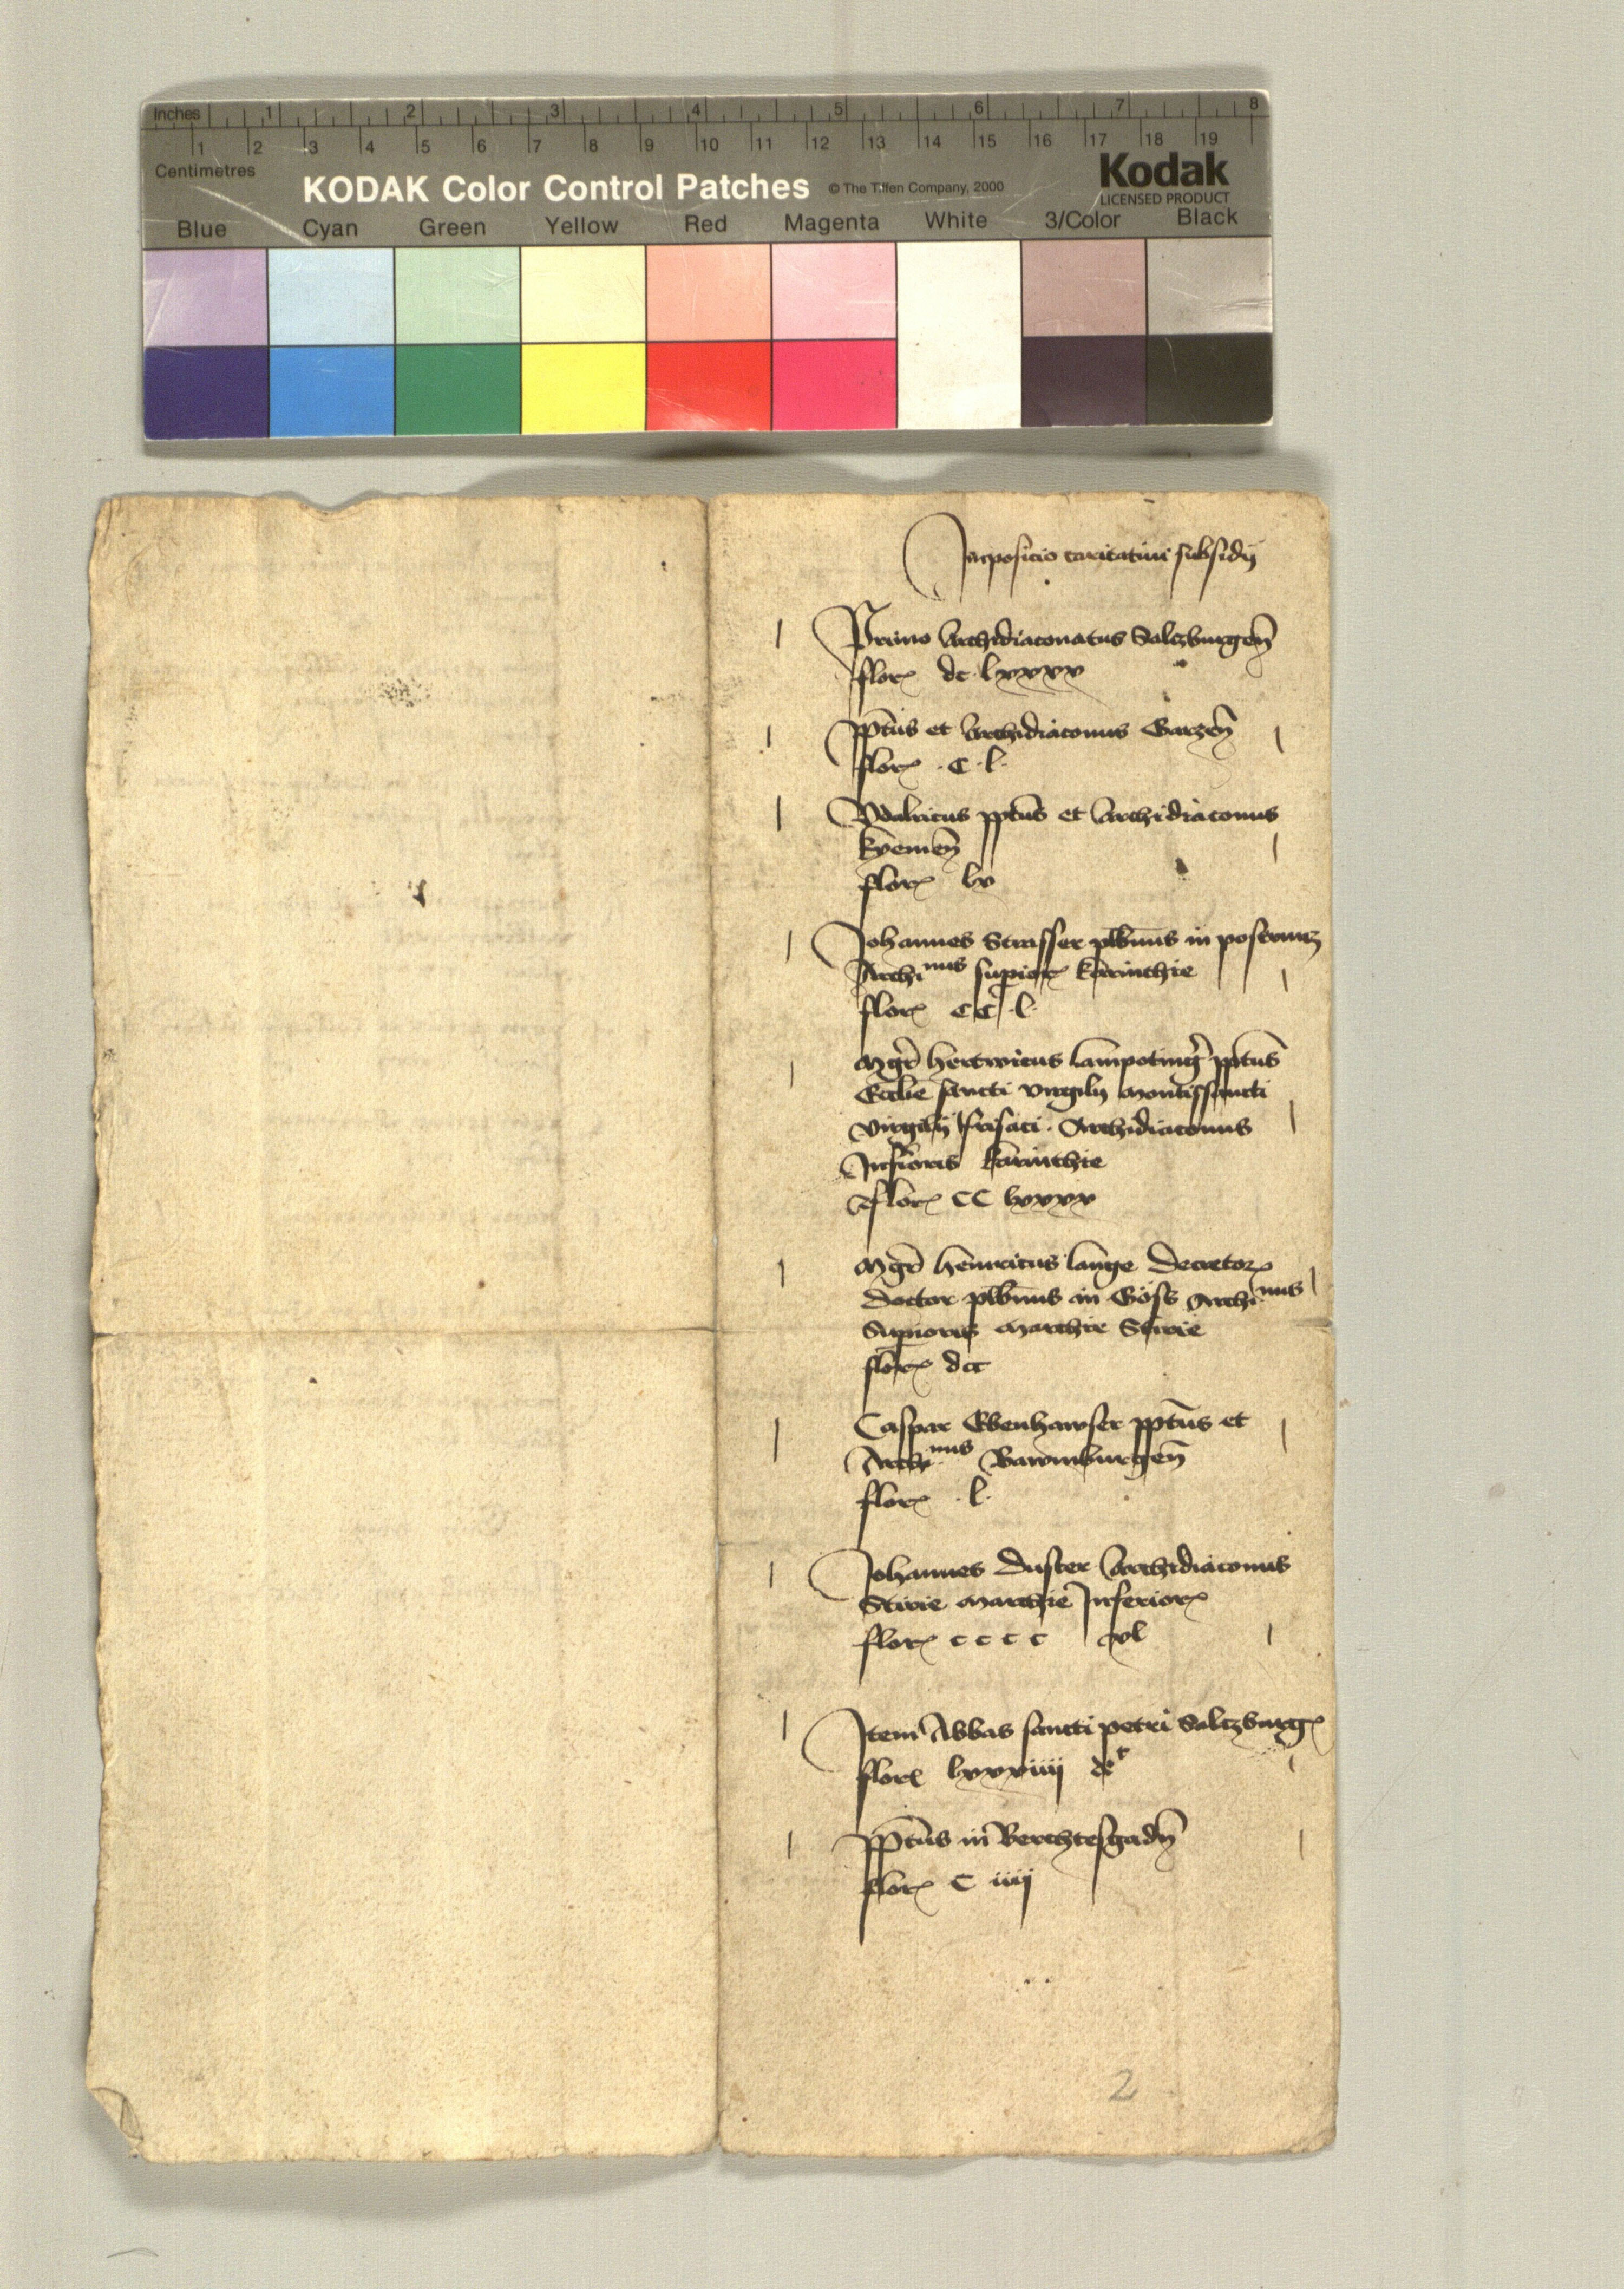 Inches 1 2 3 4 5 6 7 8
1 2 3 4 5 6 7 8 9 10 11 12 13 14 15 16 17 18 19
Centimetres
KODAK Color Control Patches © The Tiffen Company, 2000 Kodak
LICENSED PRODUCT
Blue Cyan Green Yellow Red Magenta White 3/Color Black
Imposicio caritativi subsidij
Primo Archidiaconatus Salczburgen̄
flor dc lxxxx
ppt̄us et Archidiaconus Garzen̄
flor · C · l ·
Vdalricus ppt̄us et Archidiaconus
kyemen̄
flor lv
Johannes Strasser plbn̄us in
Archinus supior karinthie
flor CC · l ·
Mgr̄ hertwicus lampoting ppt̄us
Eccl̄ie sancti virgilij montissancti
virgilij frisaci · Archidiaconus
Inferioris karinthie
flor CC lxxxx
Mgr̄ henricus lange Decretor
doctor plbn̄us in Göss Archinus
Superioris marchie Stirie
flor dcc
Caspar Ebenhawser ppt̄us et
Archinus Bawmburgen̄
flor · l ·
Johannes Duster Archidiaconus
Stirie marchie Inferior
flor c c c c xl
Item Abbas sancti petri Salczburg
flor lxxxiiij
ppt̄us in Berchtesgadn̄
flor C iiij
2